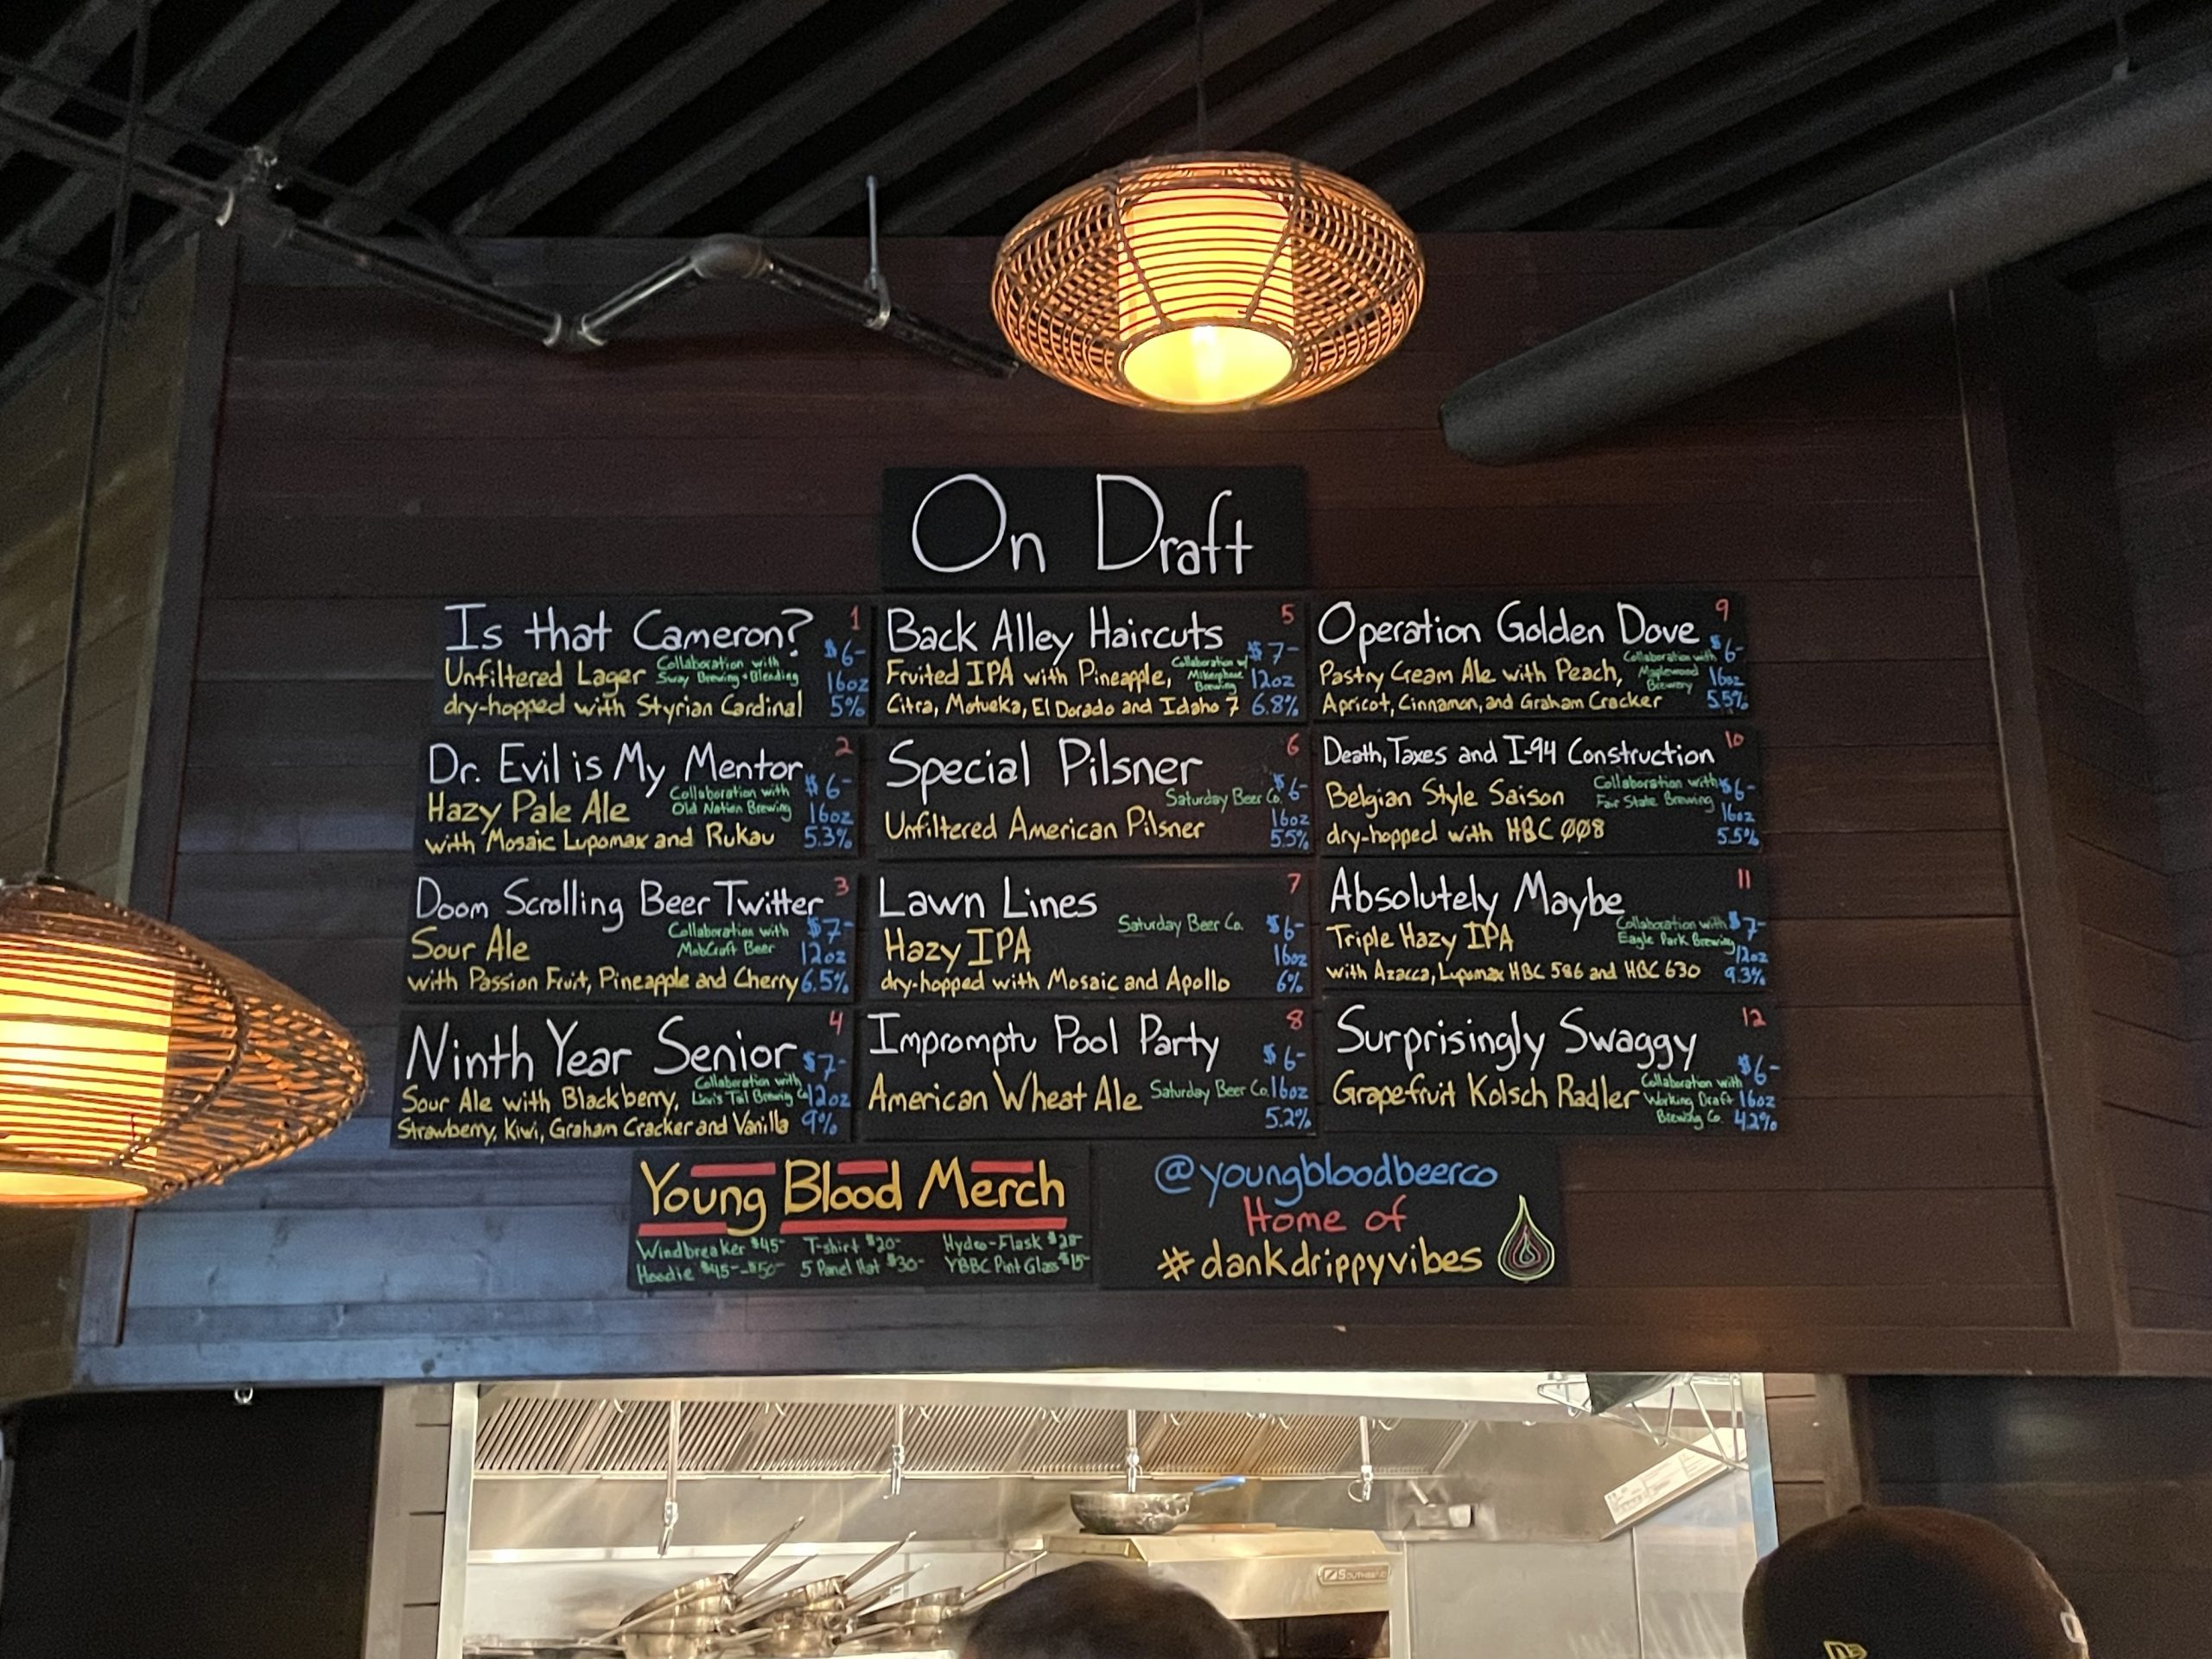 On Draft
Is that Cameron? 1
$6-
Unfiltered Lager
Collaboration with
Sway Brewing + Blending
16oz
dry-hopped with Styrian Cardinal 5%
Dr. Evil is My Mentor 2
$6-
Hazy Pale Ale
Collaboration with
Old Nation Brewing
16oz
with Mosaic Lupomax and Rukau 5.3%
Doom Scrolling Beer Twitter 3
$7-
Sour Ale
Collaboration with
MobCraft Beer
12oz
with Passion Fruit, Pineapple and Cherry 6.5%
Ninth Year Senior 4
$7-
Sour Ale with Blackberry,
Collaboration with
Lion's Tail Brewing Co
12oz
Strawberry, Kiwi, Graham Cracker and Vanilla 9%
Back Alley Haircuts 5
$7-
Fruited IPA with Pineapple,
Collaboration w/
Mikerphone
Brewing
12oz
Citra, Motueka, El Dorado and Idaho 7 6.8%
Special Pilsner 6
Saturday Beer Co. $6-
Unfiltered American Pilsner
16oz
5.5%
Lawn Lines 7
Saturday Beer Co. $6-
Hazy IPA
16oz
dry-hopped with Mosaic and Apollo 6%
Impromptu Pool Party 8
$6-
American Wheat Ale Saturday Beer Co. 16oz
5.2%
Operation Golden Dove 9
$6-
Pastry Cream Ale with Peach,
Collaboration with
Maplewood
Brewery
16oz
Apricot, Cinnamon, and Graham Cracker 5.5%
Death, Taxes and I-94 Construction 10
$6-
Belgian Style Saison
Collaboration with
Fair State Brewing
16oz
dry-hopped with HBC 008 5.5%
Absolutely Maybe 11
$7-
Triple Hazy IPA
Collaboration with
Eagle Park Brewing
12oz
with Azacca, Lupomax HBC 586 and HBC 630 9.3%
Surprisingly Swaggy 12
$6-
Grapefruit Kolsch Radler
Collaboration with
Working Draft
Brewing Co.
16oz
4.2%
Young Blood Merch
Windbreaker $45- T-shirt $20- Hydro-Flask $28-
Hoodie $45-$50- 5 Panel Hat $30- YBBC Pint Glass $15-
@youngbloodbeerco
Home of
#dankdrippyvibes